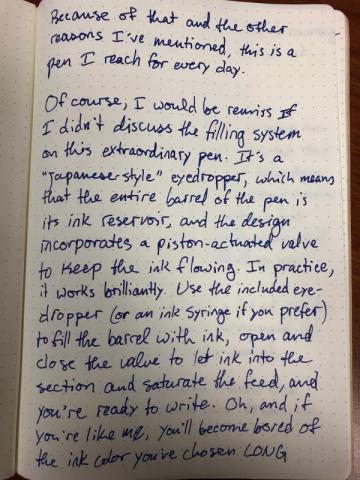 Because of that and the other
reasons I've mentioned, this is a
pen I reach for every day.
Of course, I would be remiss if
I didn't discuss the filling system
on this extraordinary pen. It's a
"Japanese-style" eyedropper, which means
that the entire barrel of the pen is
its ink reservoir, and the design
incorporates a piston-actuated valve
to keep the ink flowing. In practice,
it works brilliantly. Use the included eye-
dropper (or an ink syringe if you prefer)
to fill the barrel with ink, open and
close the valve to let ink into the
section and saturate the feed, and
you're ready to write. Oh, and if
you're like me, you'll become bored of
the ink color you've chosen LONG